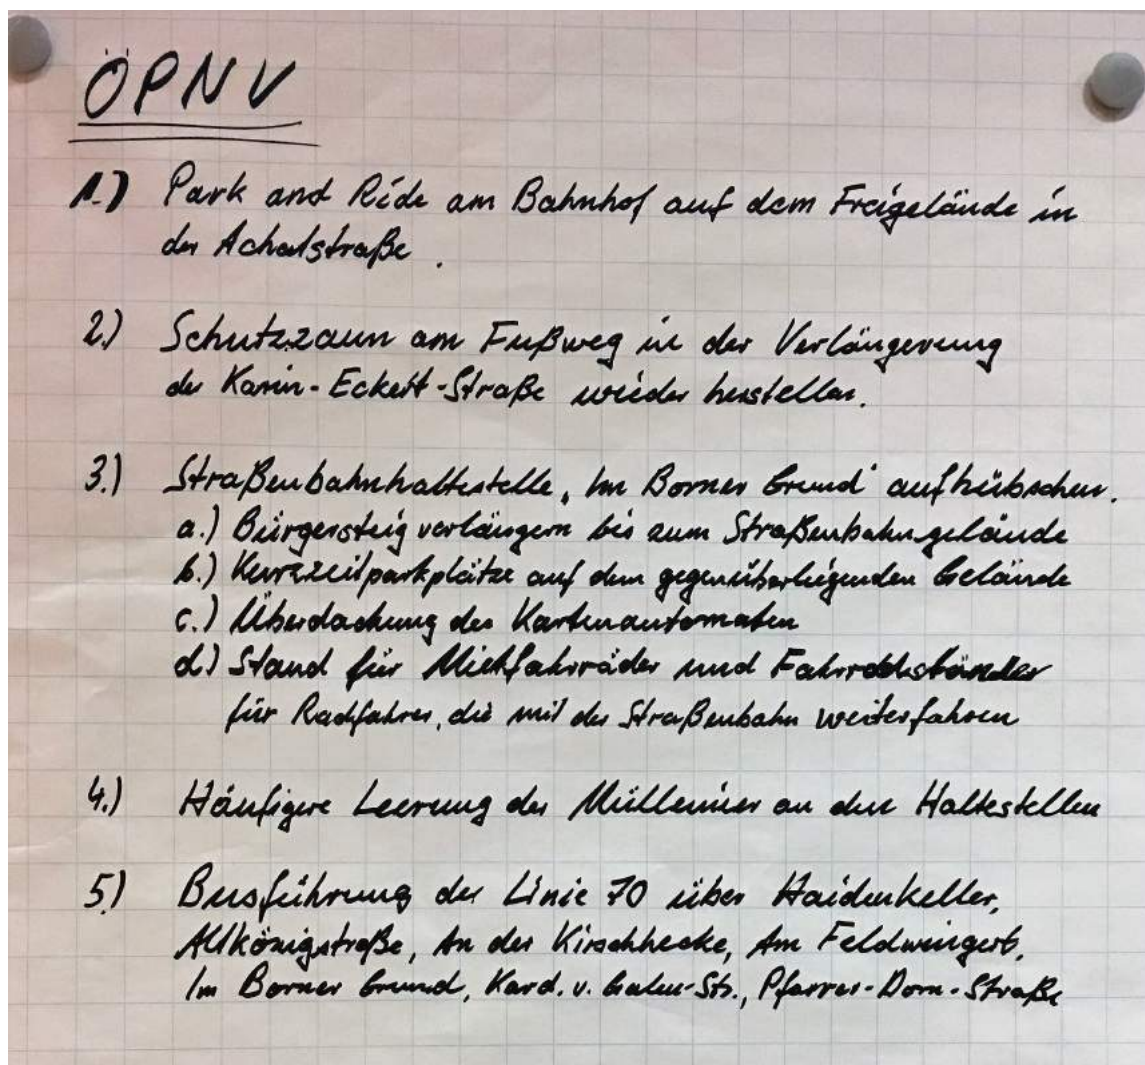 ÖPNV
1.) Park and Ride am Bahnhof auf dem Freigelände in
der Achatstraße.
2.) Schutzzaun am Fußweg in der Verlängerung
der Karin-Eckert-Straße wieder herstellen.
3.) Straßenbahnhaltestelle „Im Borner Grund" aufhübschen.
a.) Bürgersteig verlängern bis zum Straßenbahngelände
b.) Kurzzeitparkplätze auf dem gegenüberliegenden Gelände
c.) Überdachung des Kartenautomaten
d.) Stand für Mietfahrräder und Fahrradständer
für Radfahrer, die mit der Straßenbahn weiterfahren
4.) Häufigere Leerung der Mülleimer an den Haltestellen
5.) Busführung der Linie 70 über Haidenkeller,
Altkönigstraße, An der Kirschhecke, Am Feldwingert,
Im Borner Grund, Kard. v. Galen-Str., Pfarrer-Dorn-Straße